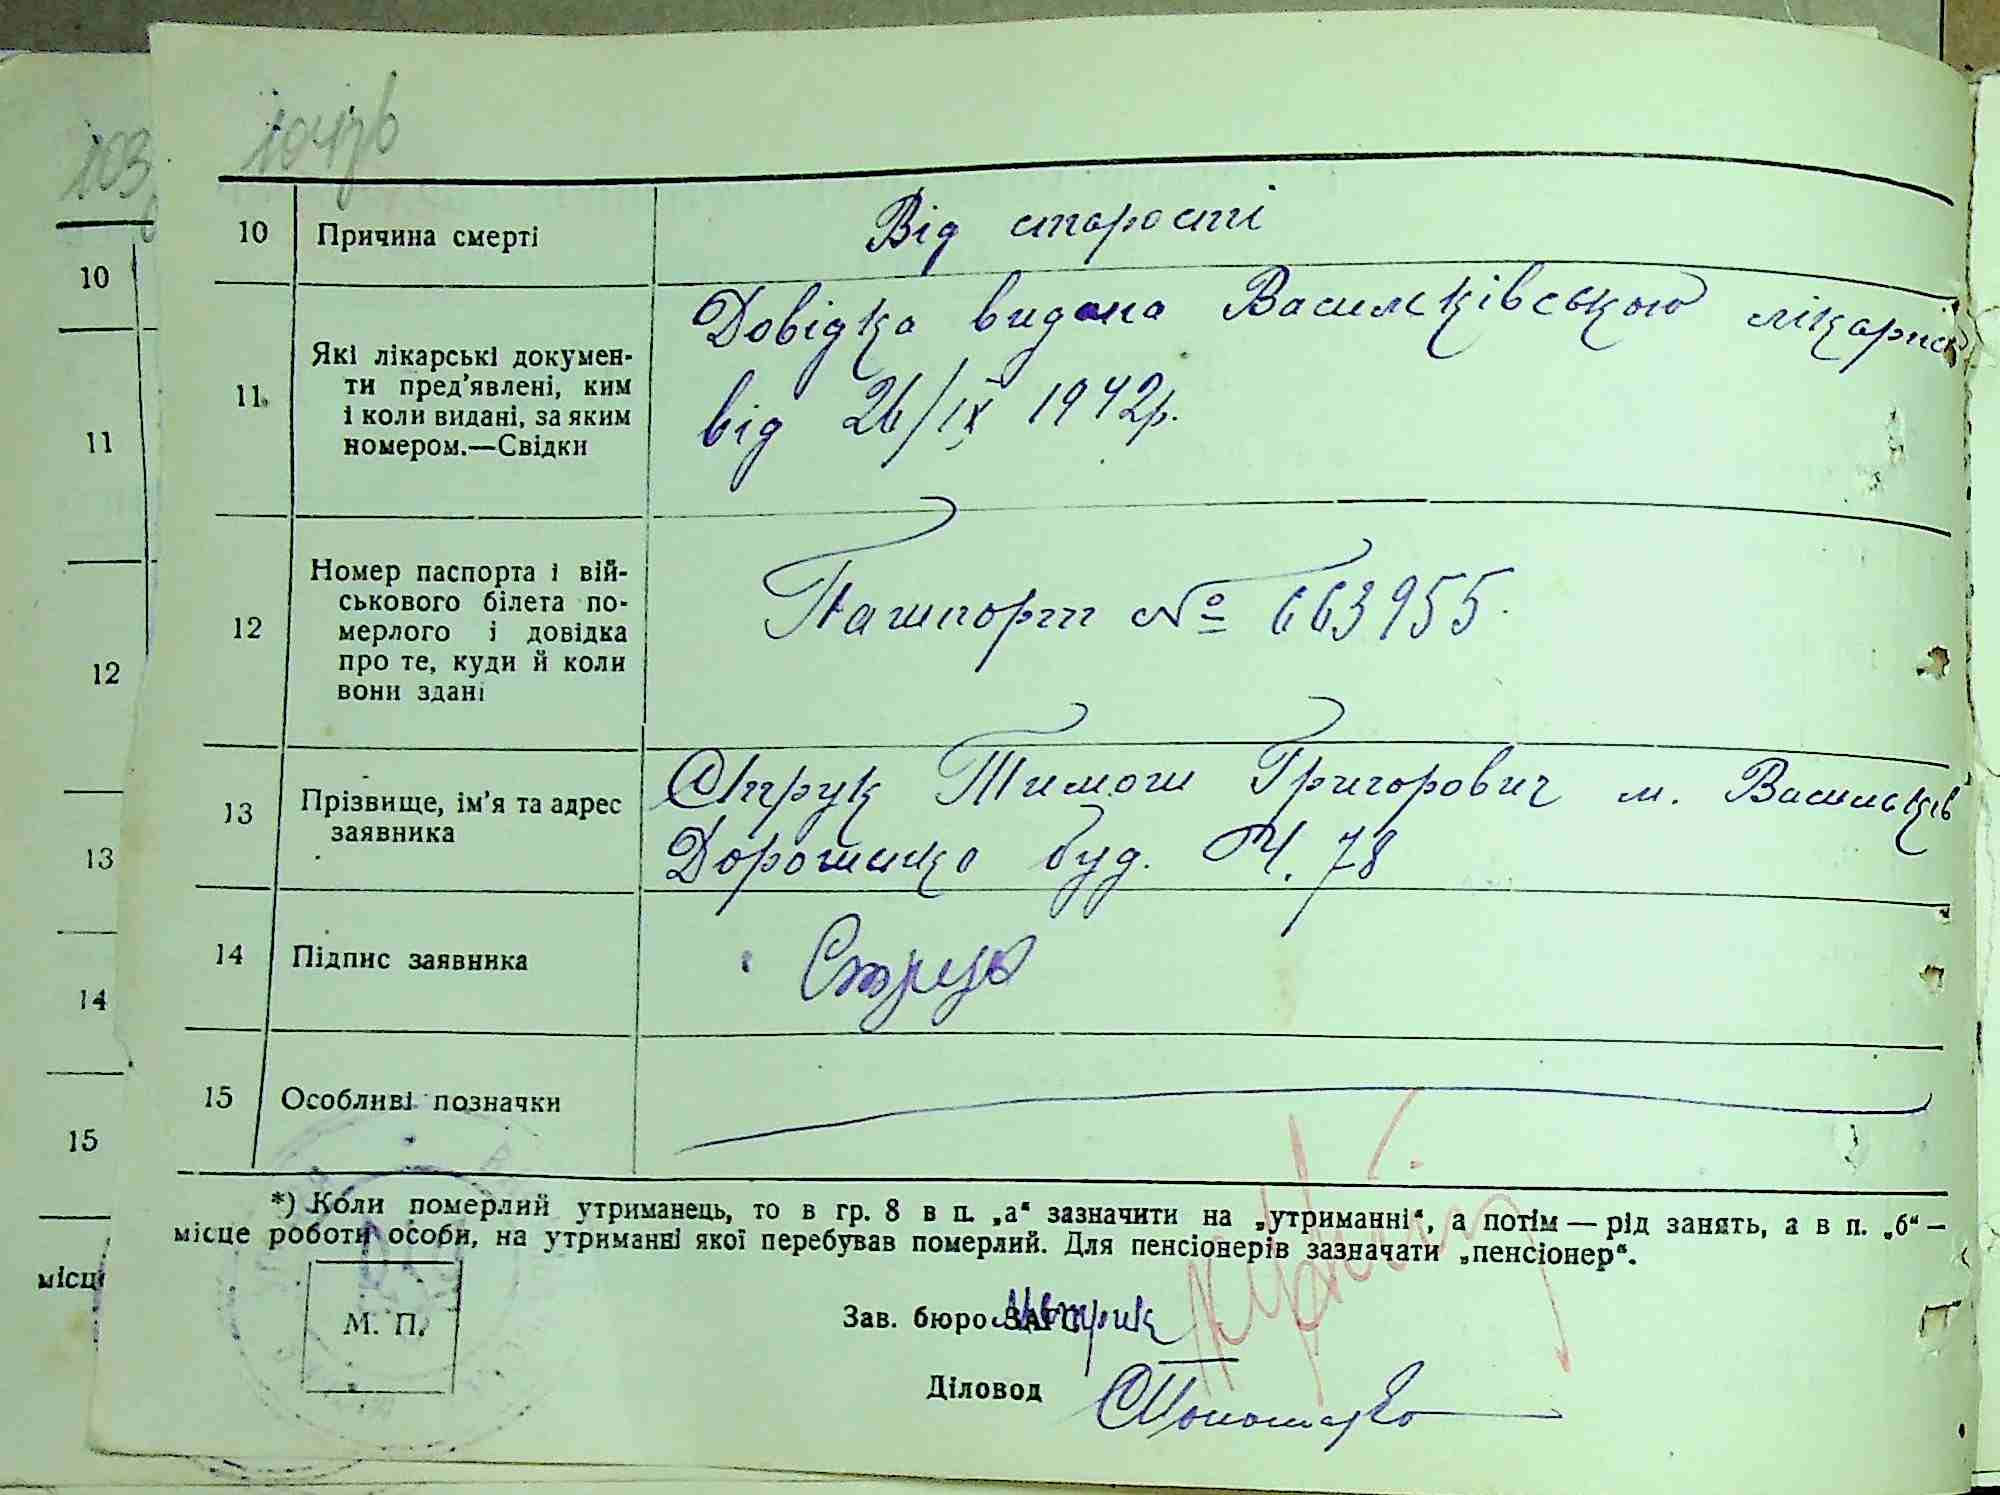 103
104зв
10 Причина смерті Від старости
11 Які лікарські докумен-
ти пред'явлені, ким
і коли видані, за яким
номером.—Свідки
Довідка видана Васильківською лікарнею
від 26/IX 1942р.
12 Номер паспорта і вій-
ськового білета по-
мерлого і довідка
про те, куди й коли
вони здані
Пашпорт № 663955.
13 Прізвище, ім'я та адрес
заявника
Струк Тимош Григорович м. Васильків
Дорошенка буд. Ч. 78
14 Підпис заявника Струк
15 Особливі позначки
*) Коли померлий утриманець, то в гр. 8 в п. „а“ зазначити на „утриманні“, а потім — рід занять, а в п. „б“ —
місце роботи особи, на утриманні якої перебував померлий. Для пенсіонерів зазначати „пенсіонер“.
М. П.
Зав. бюро ЗАГС
Діловод
10
11
12
13
14
15
місце